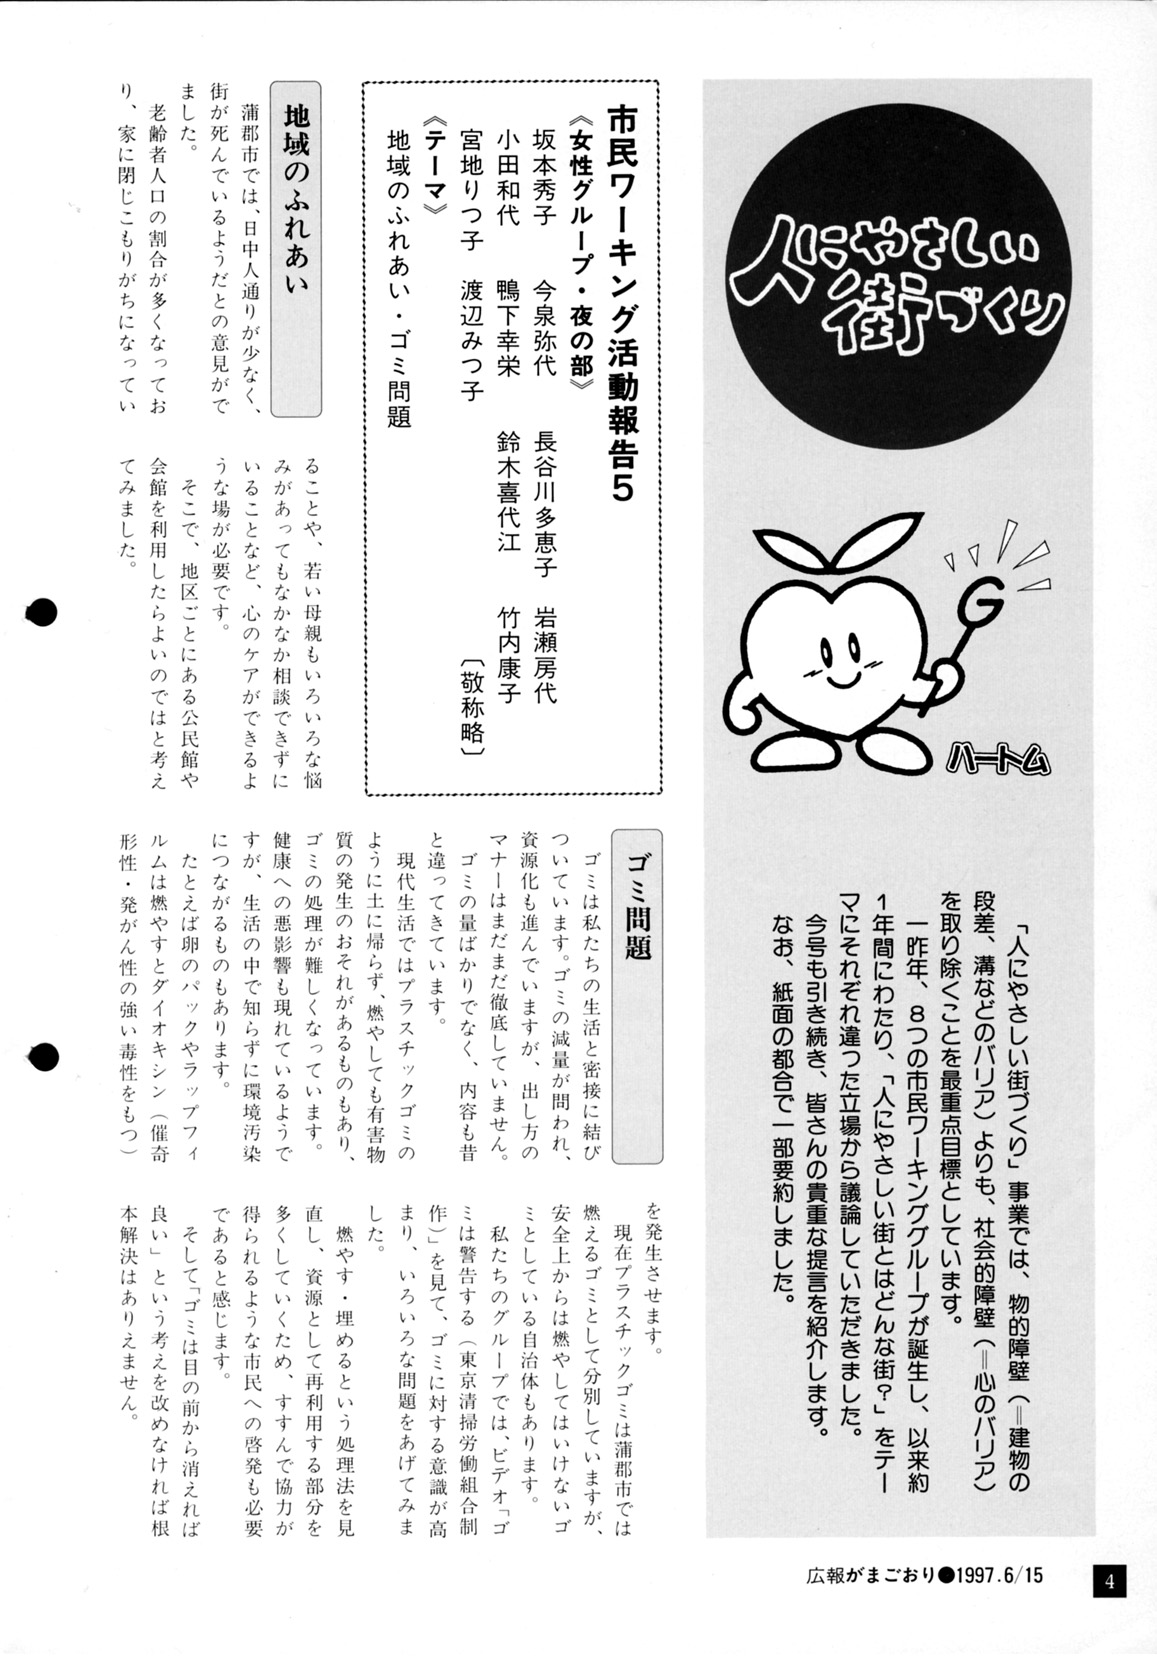 人にやさしい
街づくり
ハートム
「人にやさしい街づくり」事業では、物的障壁（＝建物の
段差、溝などのバリア）よりも、社会的障壁（＝心のバリア）
を取り除くことを最重点目標としています。
一昨年、８つの市民ワーキンググループが誕生し、以来約
１年間にわたり、「人にやさしい街とはどんな街？」をテー
マにそれぞれ違った立場から議論していただきました。
今号も引き続き、皆さんの貴重な提言を紹介します。
なお、紙面の都合で一部要約しました。
市民ワーキング活動報告５
《女性グループ・夜の部》
坂本秀子　今泉弥代　長谷川多恵子　岩瀬房代
小田和代　鴨下幸栄　鈴木喜代江　竹内康子
宮地りつ子　渡辺みつ子　〔敬称略〕
《テーマ》
地域のふれあい・ゴミ問題
地域のふれあい
蒲郡市では、日中人通りが少なく、
街が死んでいるようだとの意見がで
ました。
老齢者人口の割合が多くなってお
り、家に閉じこもりがちになってい
ることや、若い母親もいろいろな悩
みがあってもなかなか相談できずに
いることなど、心のケアができるよ
うな場が必要です。
そこで、地区ごとにある公民館や
会館を利用したらよいのではと考え
てみました。
ゴミ問題
ゴミは私たちの生活と密接に結び
ついています。ゴミの減量が問われ、
資源化も進んでいますが、出し方の
マナーはまだまだ徹底していません。
ゴミの量ばかりでなく、内容も昔
と違ってきています。
現代生活ではプラスチックゴミの
ように土に帰らず、燃やしても有害物
質の発生のおそれがあるものもあり、
ゴミの処理が難しくなっています。
健康への悪影響も現れているようで
すが、生活の中で知らずに環境汚染
につながるものもあります。
たとえば卵のパックやラップフィ
ルムは燃やすとダイオキシン（催奇
形性・発がん性の強い毒性をもつ）
を発生させます。
現在プラスチックゴミは蒲郡市では
燃えるゴミとして分別していますが、
安全上からは燃やしてはいけないゴ
ミとしている自治体もあります。
私たちのグループでは、ビデオ「ゴ
ミは警告する（東京清掃労働組合制
作）」を見て、ゴミに対する意識が高
まり、いろいろな問題をあげてみま
した。
燃やす・埋めるという処理法を見
直し、資源として再利用する部分を
多くしていくため、すすんで協力が
得られるような市民への啓発も必要
であると感じます。
そして「ゴミは目の前から消えれば
良い」という考えを改めなければ根
本解決はありえません。
広報がまごおり●1997.6/15
4